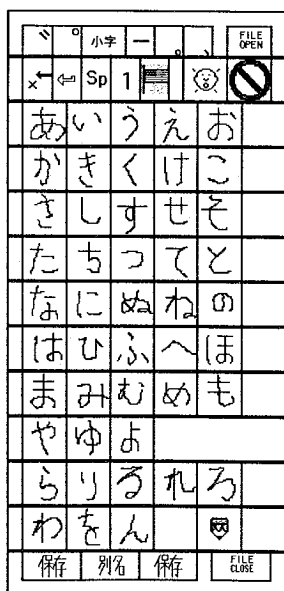 ゛ ゜ 小字 ー 。 、 FILE OPEN
×← ⇦ Sp 1
あ い う え お
か き く け こ
さ し す せ そ
た ち つ て と
な に ぬ ね の
は ひ ふ へ ほ
ま み む め も
や ゆ よ
ら り る れ ろ
わ を ん
保存 別名 保存 FILE CLOSE